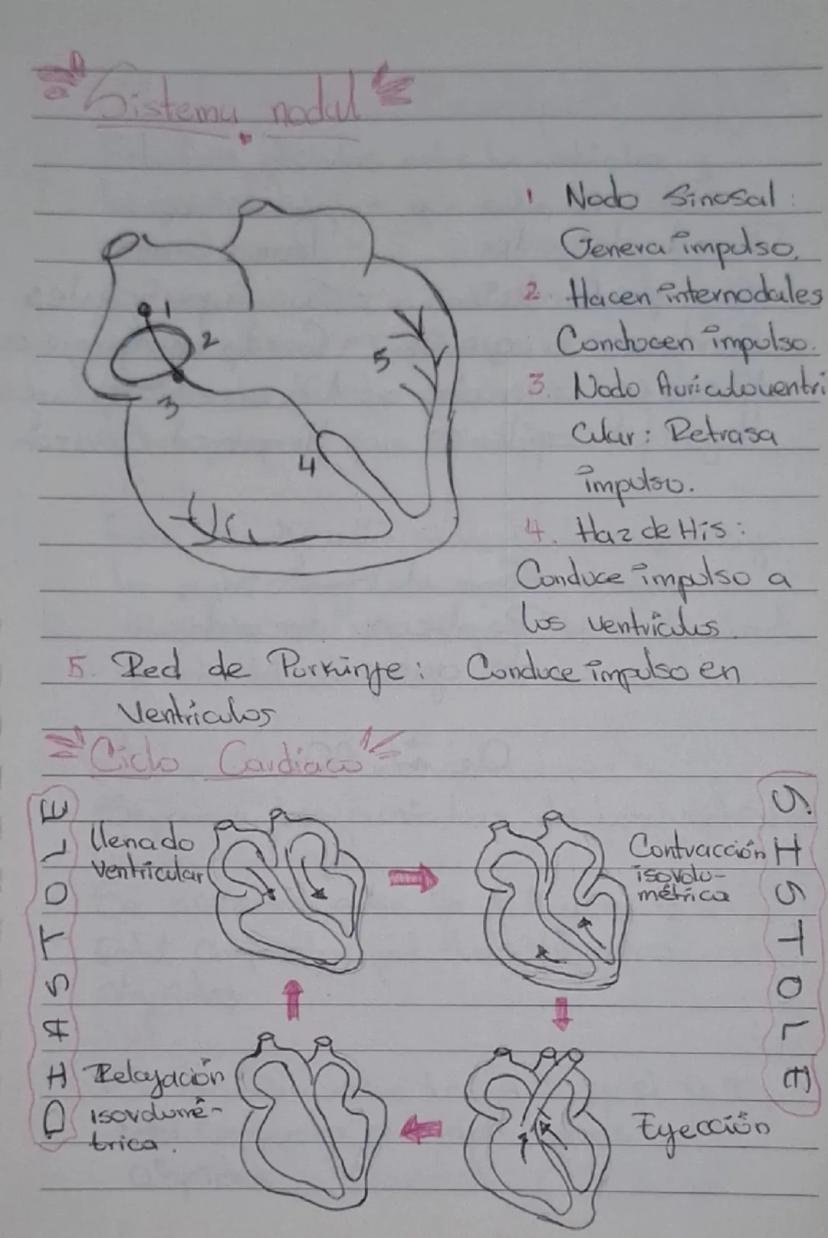 Sistema nodal
1 Nodo Sinosal:
Genera impulso.
2 Hacen internodales
Conducen impulso.
3. Nodo Auriculoventri
Cular: Retrasa
impulso.
4. Haz de His:
Conduce impulso a
los ventrículos
1
2
3
4
5
5. Red de Purkinje: Conduce impulso en
Ventriculos
Ciclo Cardiaco
DIASTOLE
SISTOLE
Llenado
Ventricular
Contracción
isovolu-
métrica
Relajación
isovolumé-
trica.
Eyección